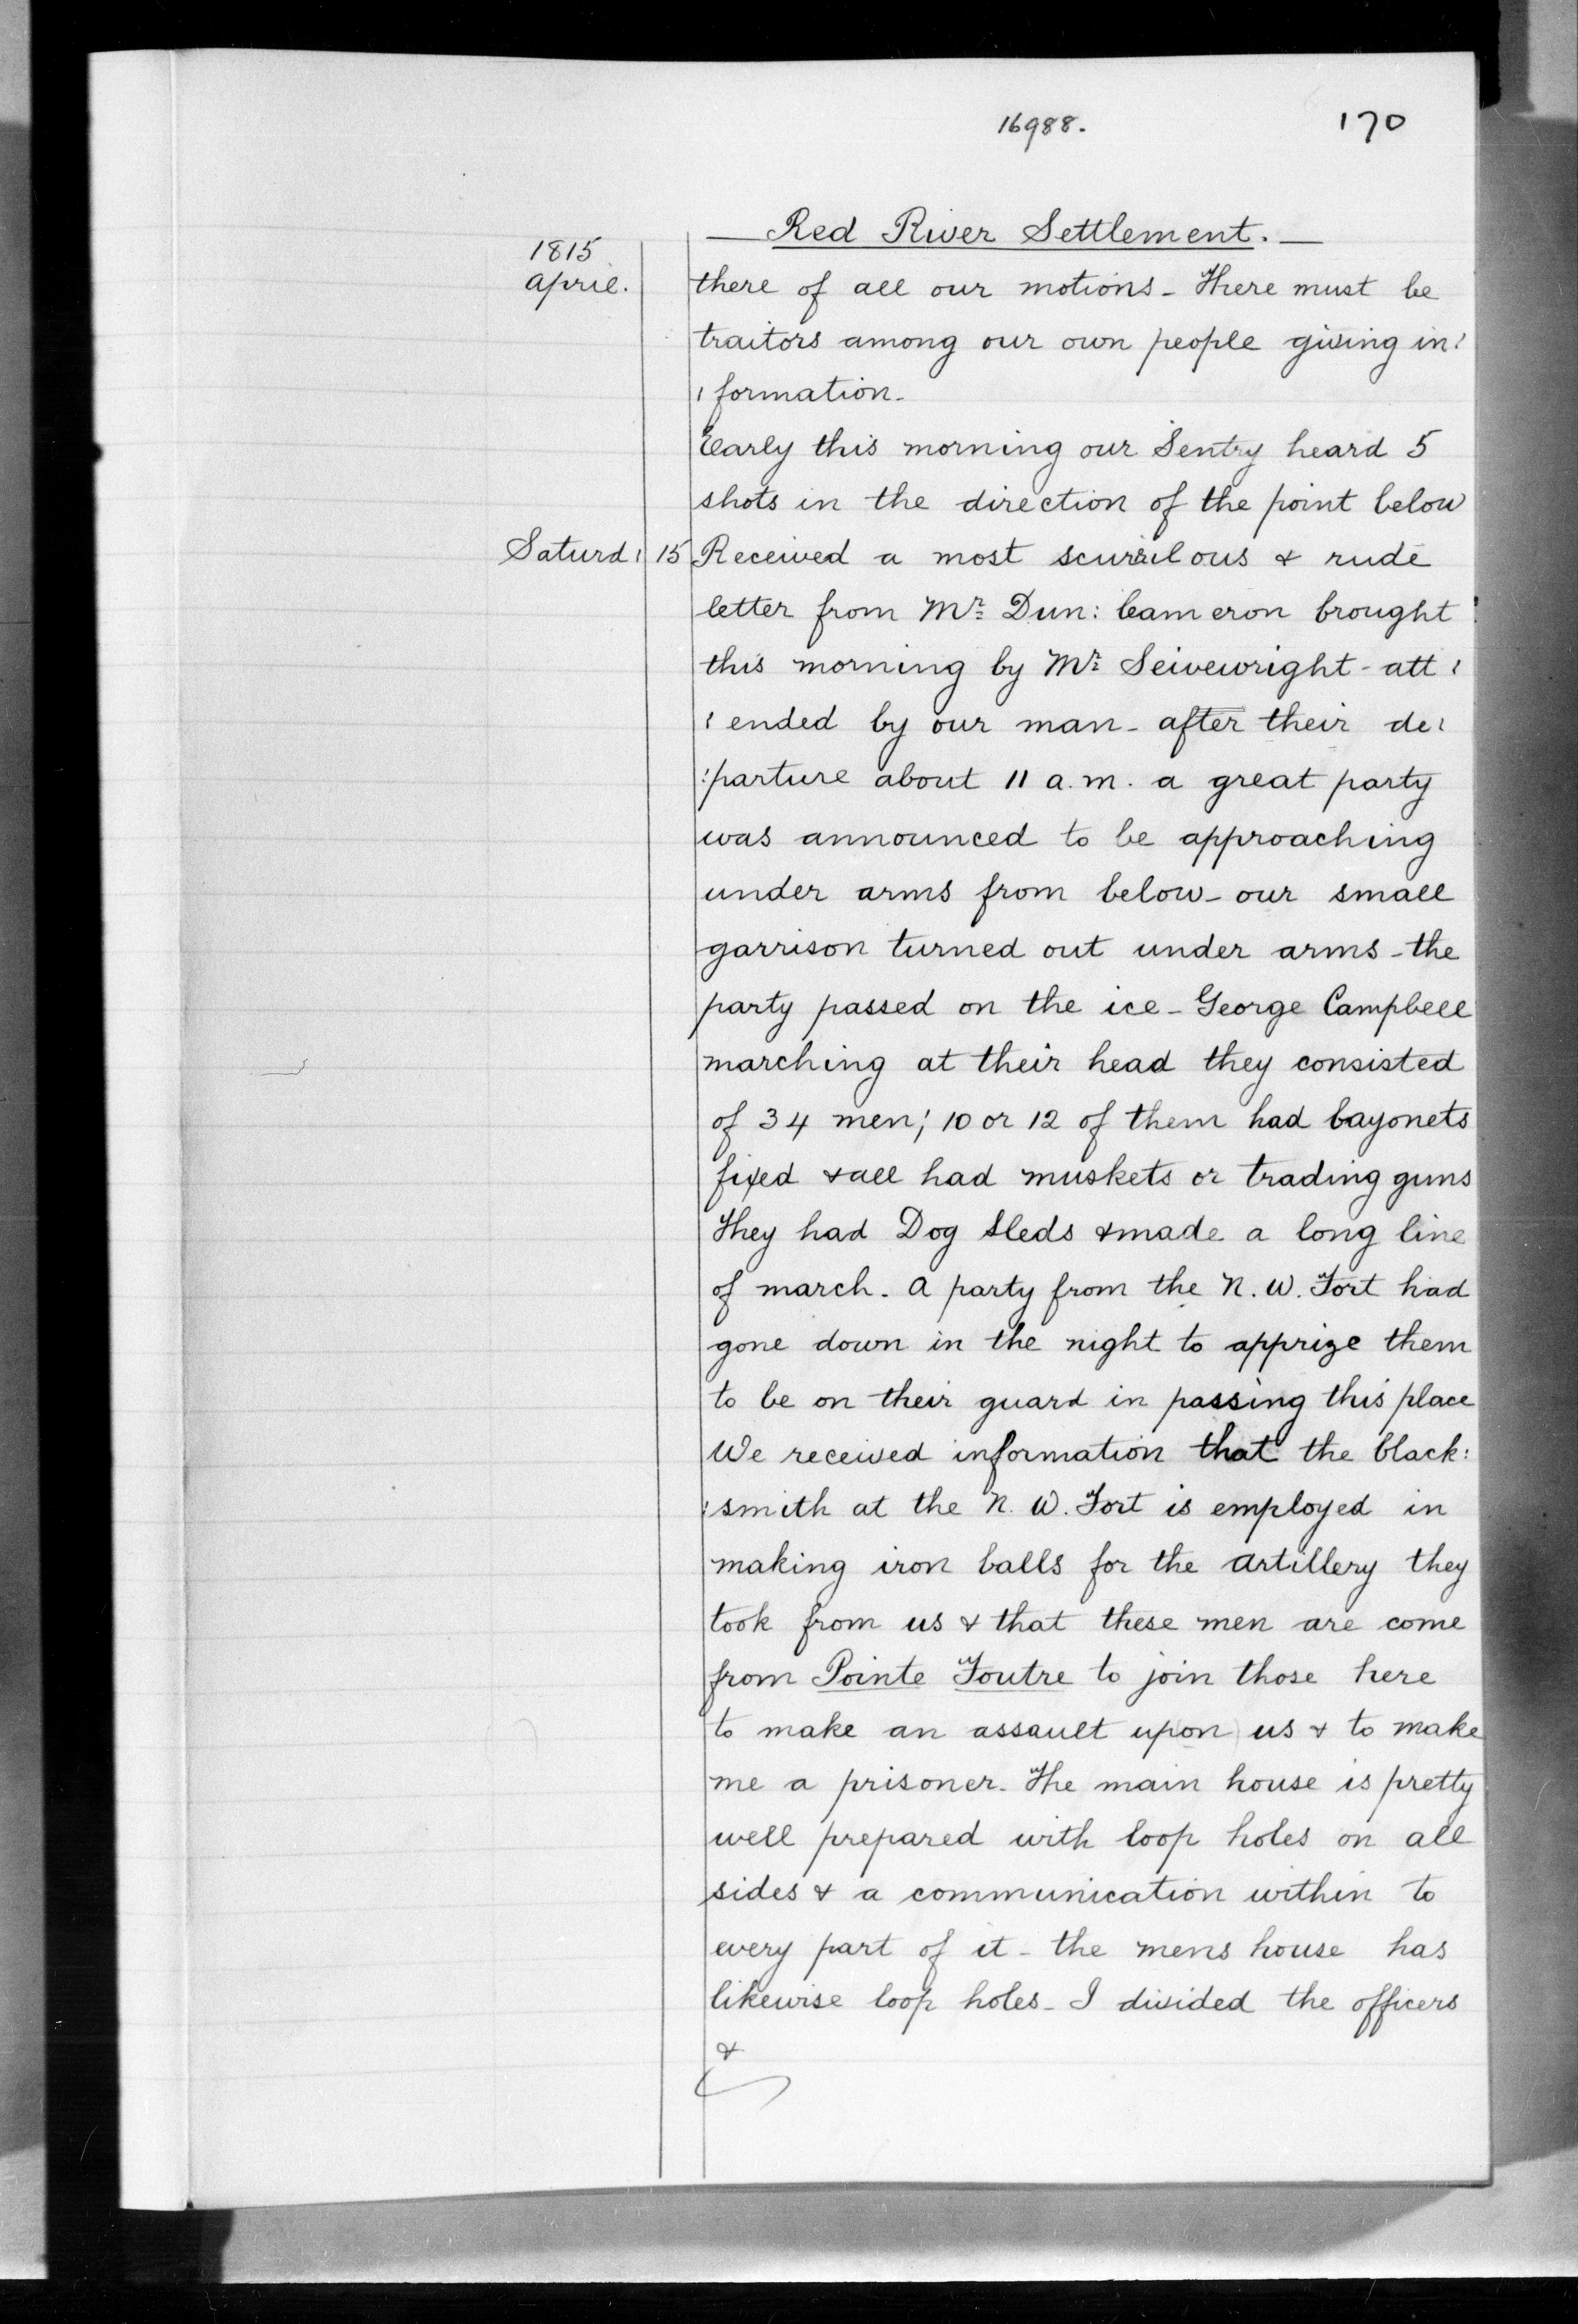 16988.
170
Red River Settlement.
1815
April.
there of all our motions - There must be
traitors among our own people giving in:
: formation -
Early this morning our Sentry heard 5
shots in the direction of the point below
Saturd: 15 Received a most scurrilous & rude
letter from Mr. Dun: Cameron brought
this morning by Mr. Seivewright - att:
: ended by our man - after their de:
: parture about 11 a.m. a great party
was announced to be approaching
under arms from below - our small
garrison turned out under arms - the
party passed on the ice - George Campbell
marching at their head they consisted
of 34 men; 10 or 12 of them had bayonets
fixed & all had muskets or trading guns
They had Dog Sleds & made a long line
of march. A party from the N. W. Fort had
gone down in the night to apprize them
to be on their guard in passing this place
We received information that the black:
: smith at the N. W. Fort is employed in
making iron balls for the artillery they
took from us & that these men are come
from Pointe Foutre to join those here
to make an assault upon us & to make
me a prisoner. The main house is pretty
well prepared with loop holes on all
sides & a communication within to
every part of it - the mens house has
likewise loop holes - I divided the officers
&